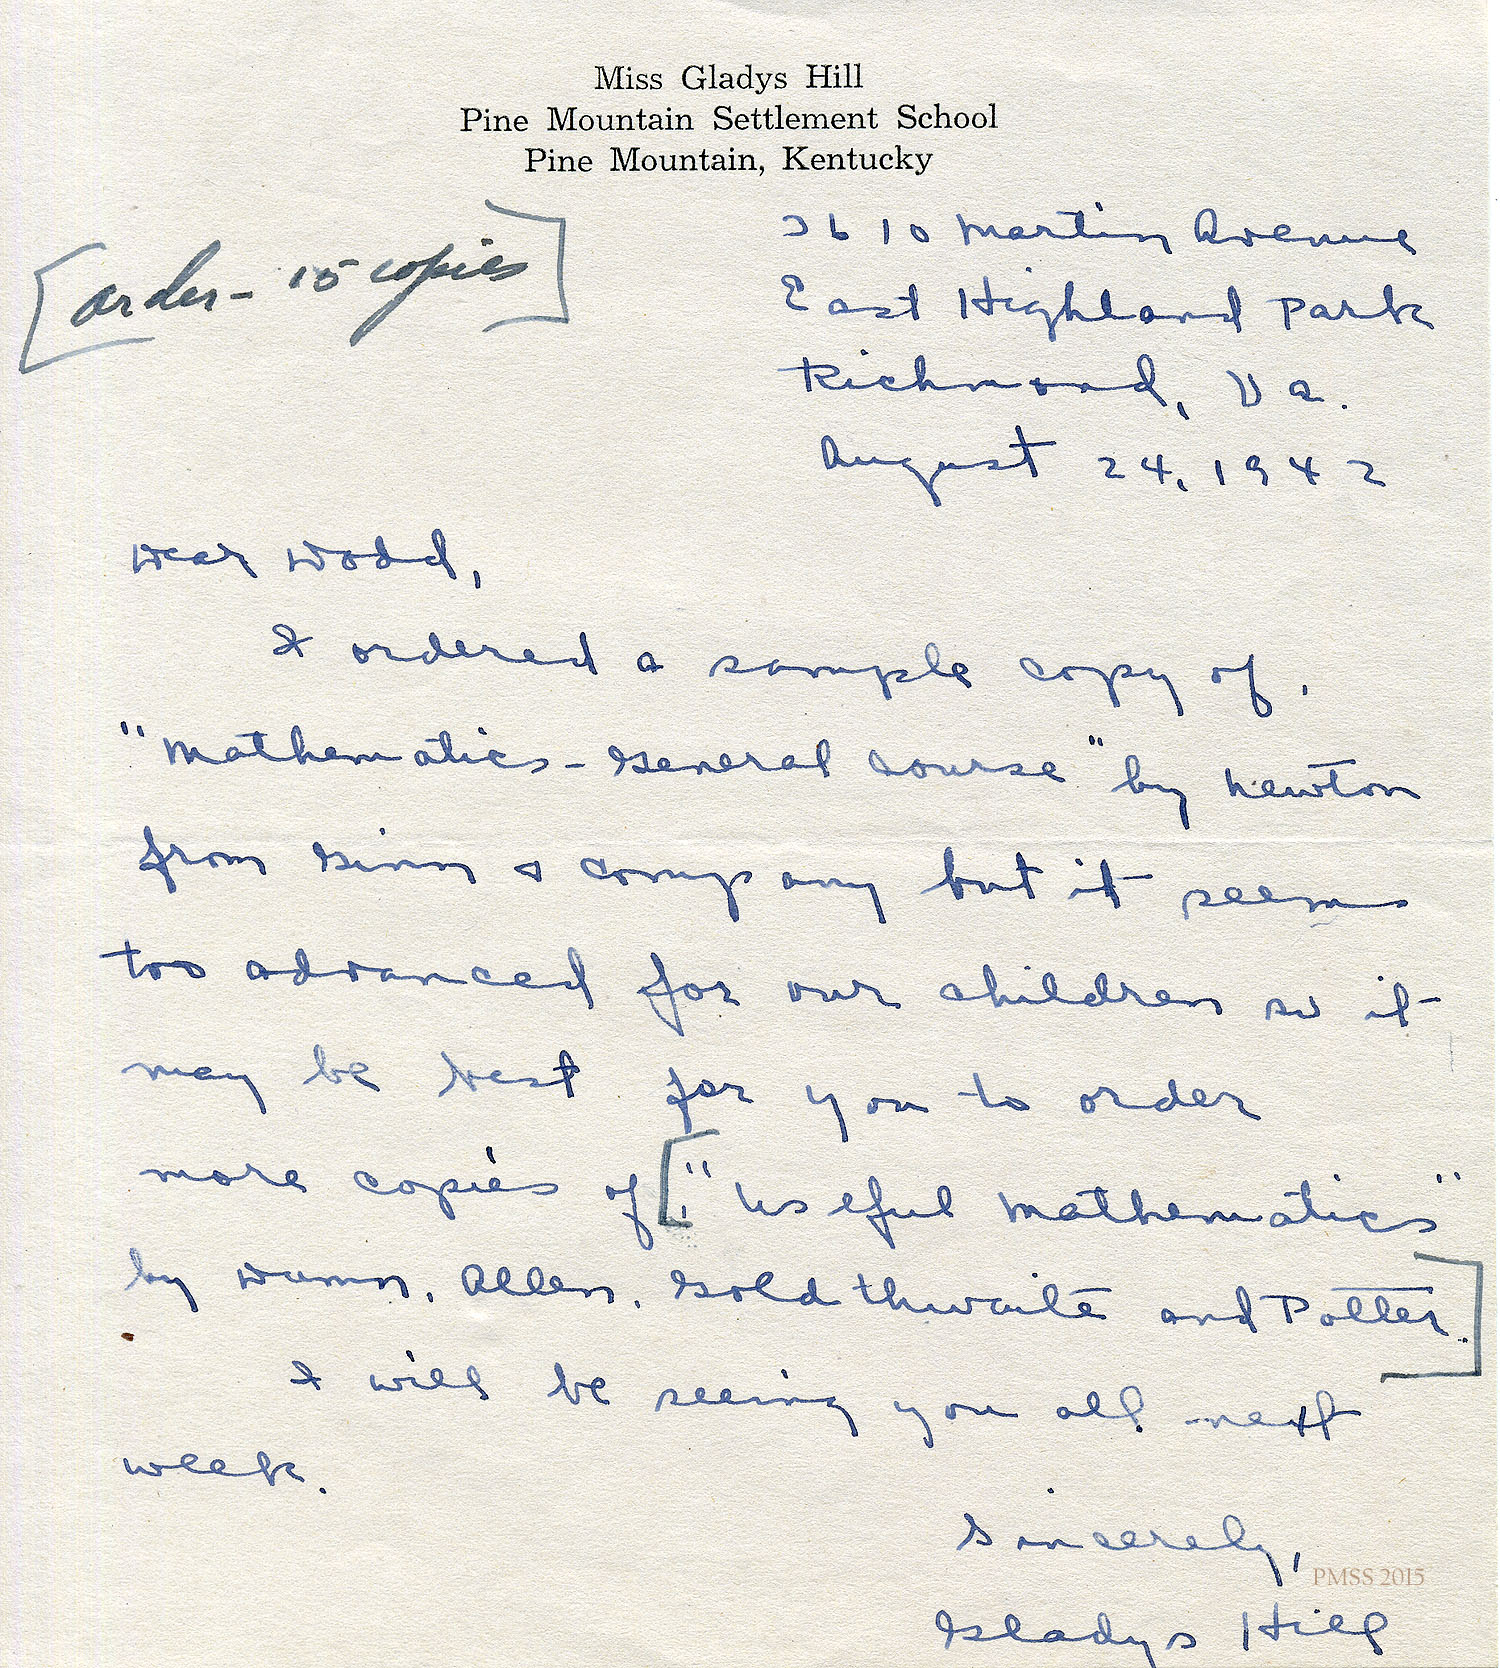 Miss Gladys Hill
Pine Mountain Settlement School
Pine Mountain, Kentucky
[order - 15 copies]
3610 Martin Avenue
East Highland Park
Richmond, Va.
August 24, 1942
Dear Dodd,
I ordered a sample copy of,
"Mathematics - General Course" by Newton
from Ginn & Company but it seems
too advanced for our children so it
may be best for you to order
more copies of, ["Useful Mathematics"
by Dunn, Allen, Goldthwaite and Potter.]
I will be seeing you all next
week.
Sincerely,
Gladys Hill
PMSS 2015